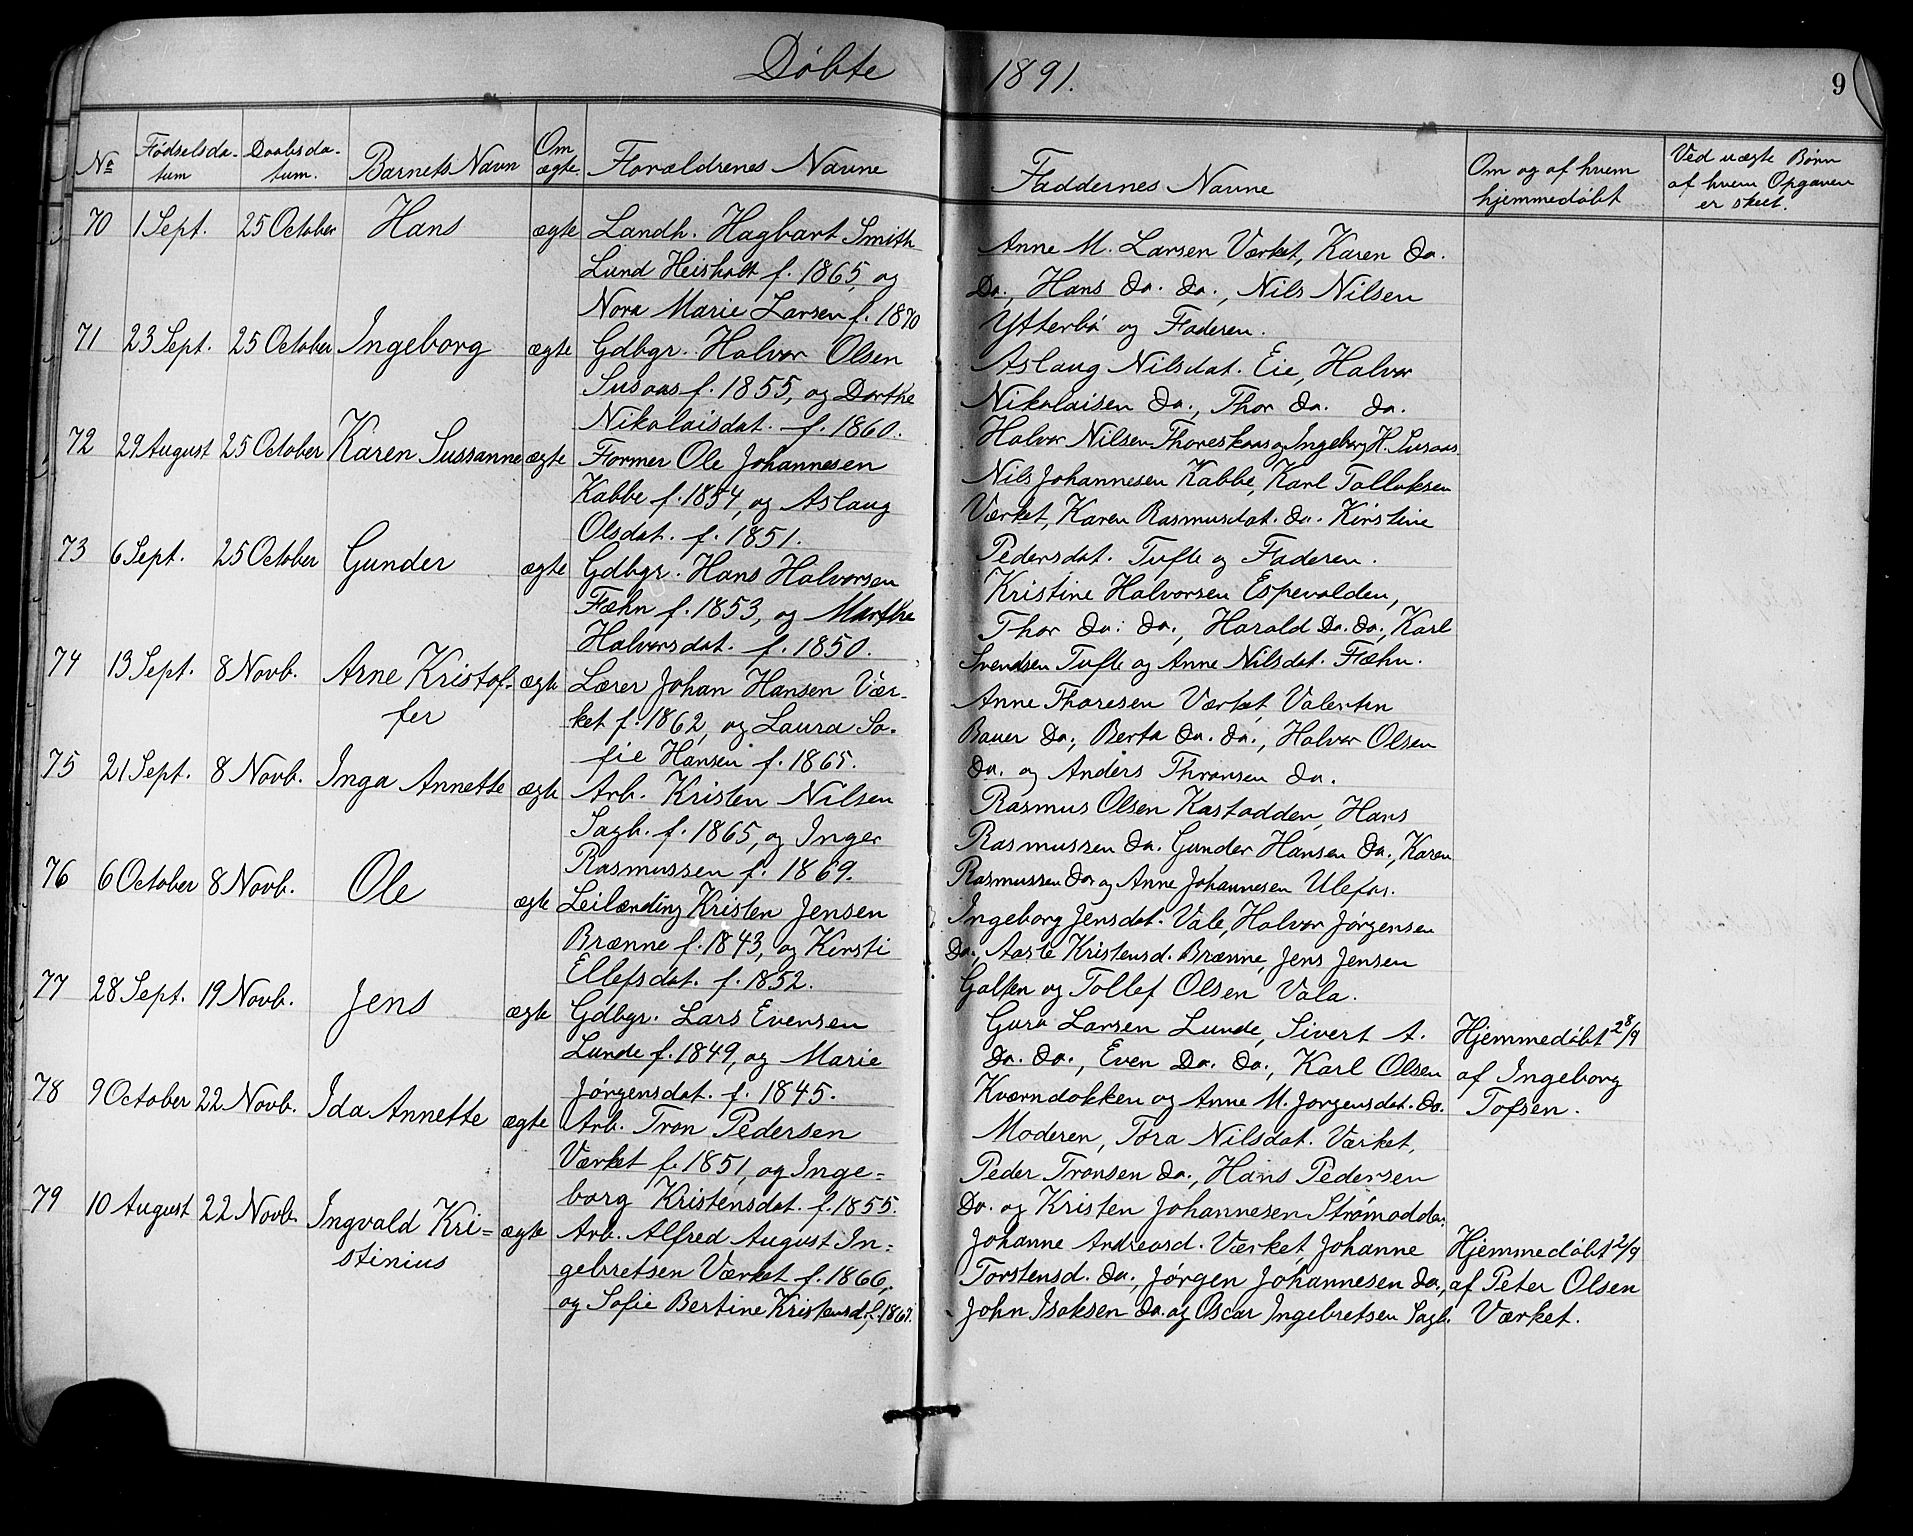 Døbte 1891.
9
No Fødselsda-tum Daabsda-tum. Barnets Navn Om ægte. Forældrenes Navne Faddernes Navne Om og af hvem hjemmedøbt Ved uægte Børn af hvem Opgaven er skeet.
70 1 Sept. 25 October Hans ægte Landh. Hagbart Smith
Lund Heisholt f. 1865, og
Nora Marie Larsen f. 1870
Anne M. Larsen Værket, Karen do.
Do., Hans do. do., Nils Nilsen
Ytterbö og Faderen.
71 23 Sept. 25 October Ingeborg ægte Gdbgr. Halvor Olsen
Susaas f. 1855, og Dorthe
Nikolaisdat. f. 1860.
Aslaug Nilsdat. Eie, Halvor
Nikolaisen do., Thor do. do.
Halvor Nilsen Thoreskaas og Ingeborg H. Susaas
72 29 August 25 October Karen Sussanne ægte Former Ole Johannesen
Kabbe f. 1854, og Aslaug
Olsdat. f. 1851.
Nils Johannesen Kabbe, Karl Tollefsen
Værket, Karen Rasmusdat. do. Kirstine
Pedersdat. Tufte og Faderen.
73 6 Sept. 25 October Gunder ægte Gdbgr. Hans Halvorsen
Fæhn f. 1853, og Marthe
Halvorsdat. f. 1850.
Kristine Halvorsen Espevalden,
Thor do. do., Harald do. do., Karl
Svendsen Tufte og Anne Nilsdat. Fæhn.
74 13 Sept. 8 Novb. Arne Kristof-
fer ægte Lærer Johan Hansen Vær-
ket f. 1862, og Laura So-
fie Hansen f. 1865.
Anne Thoresen Værket, Valentin
Bauer do., Berta do. do., Halvor Olsen
do. og Anders Thronsen do.
75 21 Sept. 8 Novb. Inga Annette ægte Arb. Kristen Nilsen
Sagb. f. 1865, og Inger
Rasmussen f. 1869.
Rasmus Olsen Kastodden, Hans
Rasmussen do. Gunder Hansen do., Karen
Rasmussen do. og Anne Johannesen Ulefos.
76 6 October 8 Novb. Ole ægte Leilænding Kristen Jensen
Brænne f. 1843, og Kersti
Ellefsdat. f. 1852.
Ingeborg Jensdat. Vale, Halvor Jørgensen
Do., Aaste Kristensd. Brænne, Jens Jensen
Galten og Tollef Olsen Vala.
77 28 Sept. 19 Novb. Jens ægte Gdbgr. Lars Evensen
Lunde f. 1849, og Marie
Jørgensdat. f. 1845.
Guro Larsen Lunde, Sivert A.
Do. do., Even Do. do., Karl Olsen
Kværndokken og Anne M. Jørgensdat. do.
Hjemmedøbt 28/9
af Ingeborg
Tofsen.
78 9 October 22 Novb. Ida Annette ægte Arb. Tron Pedersen
Værket f. 1851, og Inge=
borg Kristensdat. f. 1855.
Moderen, Tora Nilsdat. Værket,
Peder Tronsen do., Hans Pedersen
Do. og Kristen Johannesen Strømodden.
79 10 August 22 Novb. Ingvald Kri=
stinius ægte Arb. Alfred August In=
gebretsen Værket f. 1866,
og Sofie Bertine Kristensd., f.
Johanne Andreasd. Værket, Johanne
Torstensd. do., Jørgen Johannesen do.,
John Isaksen do. og Oscar Ingebretsen Sagb.
Hjemmedøbt 2/9
af Peter Olsen
Værket.